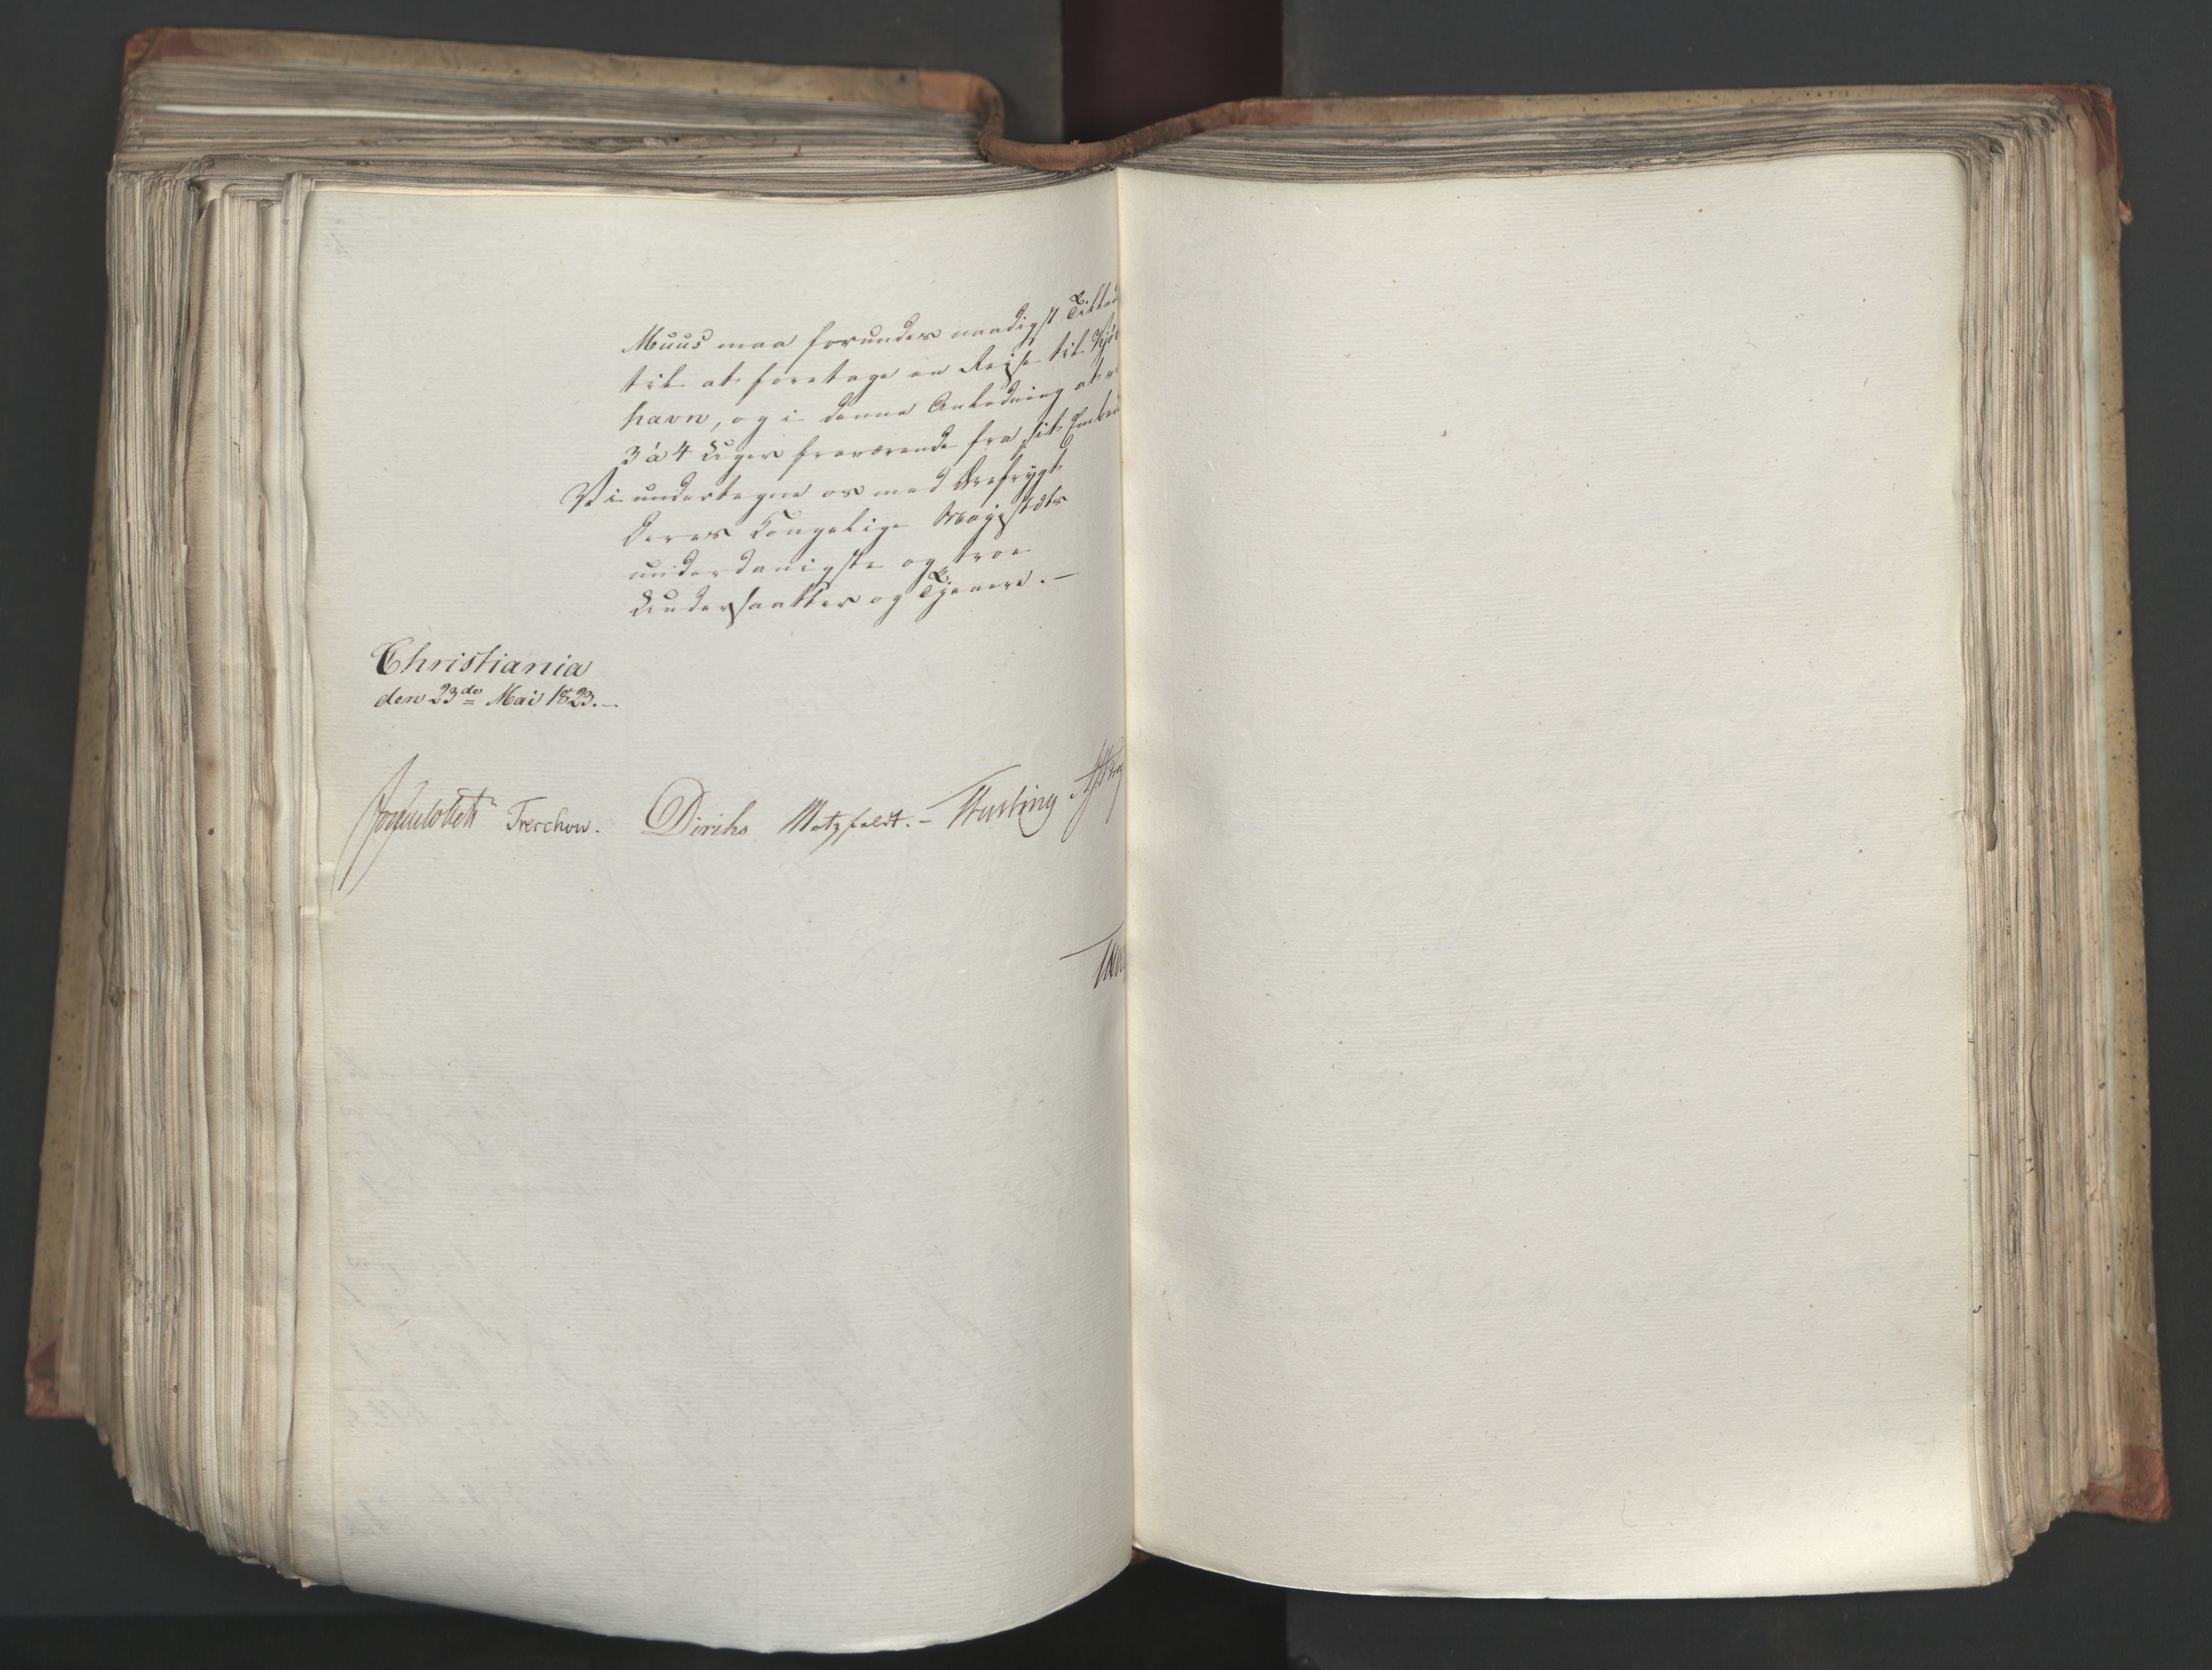 Muus maa forundes naadigst Tillad
til at foretage en Rejse til Kjö
havn, og i denne Anledning at v
3 à 4 Uger fraværende fra sit Embed
Vi undertegne os med Ærefrygt
Deres Kongelige Majestæts
underdanigste og troe
Undersaatter og Tjenere. —
Christiania
den 23de Mai 1823. —
Treschow. Diriks Motzfeldt. -